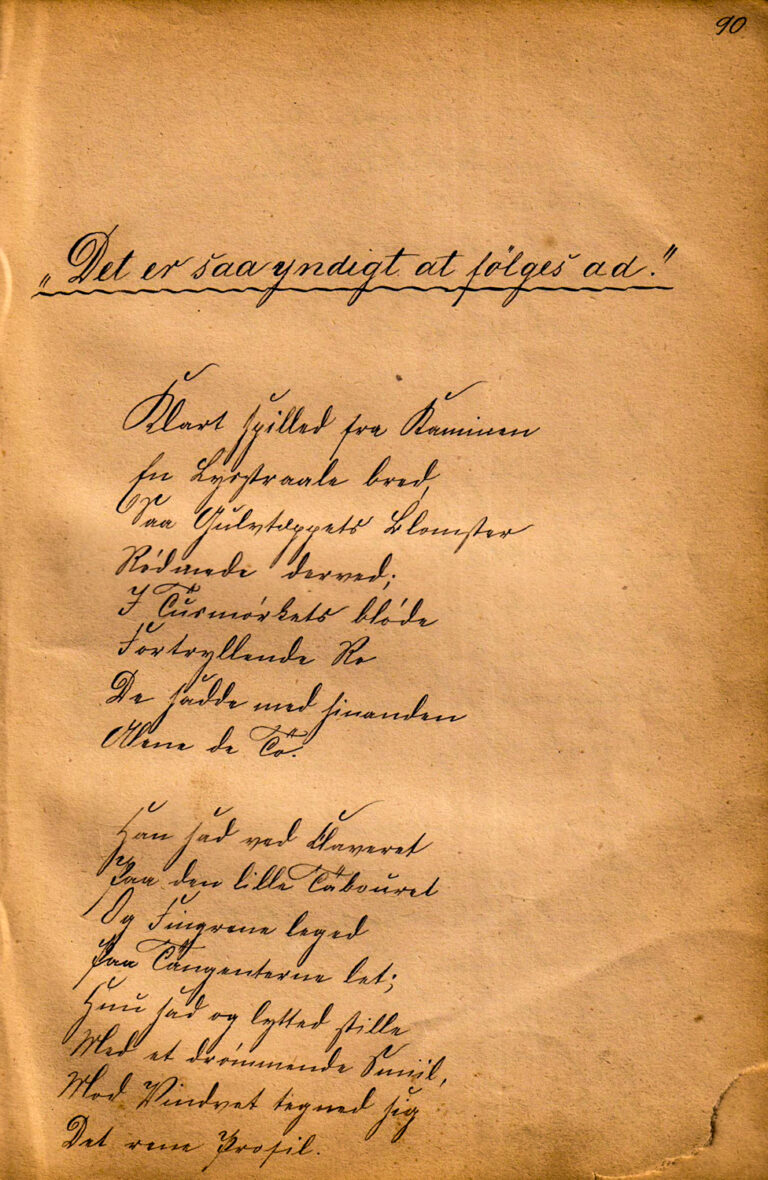 90
„Det er saa yndigt at fölges ad."
Klart spilled fra Kaminen
En Lysstraale bred,
Saa Gulvtæppets Blomster
Rødmede derved;
I Tusmørkets bløde
Fortryllende Ro
De sadde med hinanden
Alene de To.
Han sad ved Claveret
Paa den lille Tabouret
Og Fingrene leged
Paa Tangenterne let;
Hun sad og lytted stille
Med et drømmende Smiil,
Mod Vinduet tegned sig
Det rene Profil.